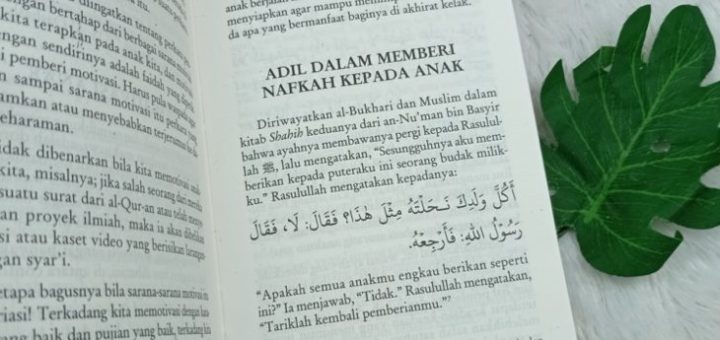 diingatkan tentang
dengan bertahap dari berbagai sarana
kita terapkan pada anak kita, dan
dengan sendirinya adalah faidah yang
i pemberi motivasi. Harus pula
n sampai sarana motivasi itu
amkan atau menyebabkan terjerumus ke
eharaman.
idak dibenarkan bila kita memotivasi
kita, misalnya; jika salah seorang dari mereka
suatu surat dari al-Qur-an atau telah
n proyek ilmiah, maka ia akan diberikan
si atau kaset video yang berisikan
gan syar'i.
etapa bagusnya bila sarana-sarana motivasi ini
riasi! Terkadang kita memotivasi dengan
ang baik dan pujian yang baik, terkadang
menyiapkan agar mampu
da apa yang bermanfaat baginya di akhirat kelak.
ADIL DALAM MEMBERI
NAFKAH KEPADA ANAK
Diriwayatkan al-Bukhari dan Muslim dalam
kitab Shahih keduanya dari an-Nu'man bin Basyir
bahwa ayahnya membawanya pergi kepada Rasulul-
lah ﷺ, lalu mengatakan, "Sesungguhnya aku mem-
berikan kepada puteraku ini seorang budak milik-
ku." Rasulullah mengatakan kepadanya:
أَكُلَّ وَلَدِكَ نَحَلْتَهُ مِثْلَ هٰذَا؟ فَقَالَ: لَا، فَقَالَ
رَسُوْلُ اللهِ: فَأَرْجِعْهُ.
"Apakah semua anakmu engkau berikan seperti
ini?" Ia menjawab, "Tidak." Rasulullah mengatakan,
"Tariklah kembali pemberianmu."⁷